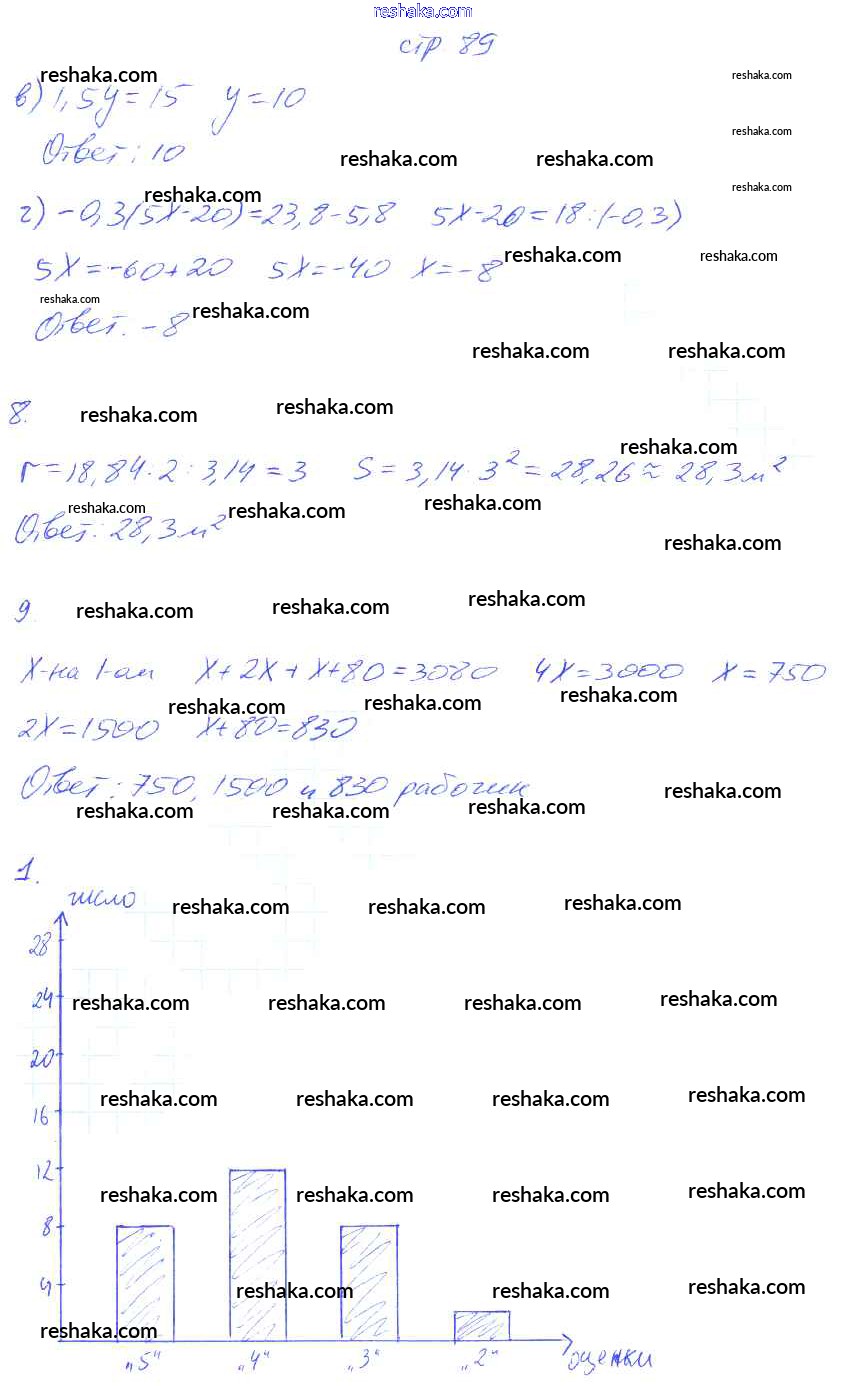 reshaka.com
стр 89
reshaka.com reshaka.com
в) 1,5y = 15 y = 10
reshaka.com
Ответ: 10 reshaka.com reshaka.com
reshaka.com reshaka.com
г) -0,3(5x-20)=23,8-5,8 5x-20=18:(-0,3)
5x=-60+20 5x=-40 x=-8 reshaka.com reshaka.com
reshaka.com
Ответ. -8 reshaka.com
reshaka.com reshaka.com
8. reshaka.com reshaka.com
reshaka.com
r=18,84·2:3,14=3 S=3,14·3²=28,26≈28,3м²
reshaka.com reshaka.com reshaka.com
Ответ: 28,3м²
reshaka.com
9. reshaka.com reshaka.com reshaka.com
x-на 1-ом x+2x+x+80=3080 4x=3000 x=750
reshaka.com reshaka.com reshaka.com
2x=1500 x+80=830
Ответ: 750, 1500 и 830 рабочих reshaka.com
reshaka.com reshaka.com reshaka.com
1.
число reshaka.com reshaka.com reshaka.com
28
24 reshaka.com reshaka.com reshaka.com reshaka.com
20
reshaka.com reshaka.com reshaka.com reshaka.com
16
12
reshaka.com reshaka.com reshaka.com reshaka.com
8
4 reshaka.com reshaka.com reshaka.com
reshaka.com
„5“ „4“ „3“ „2“ оценки